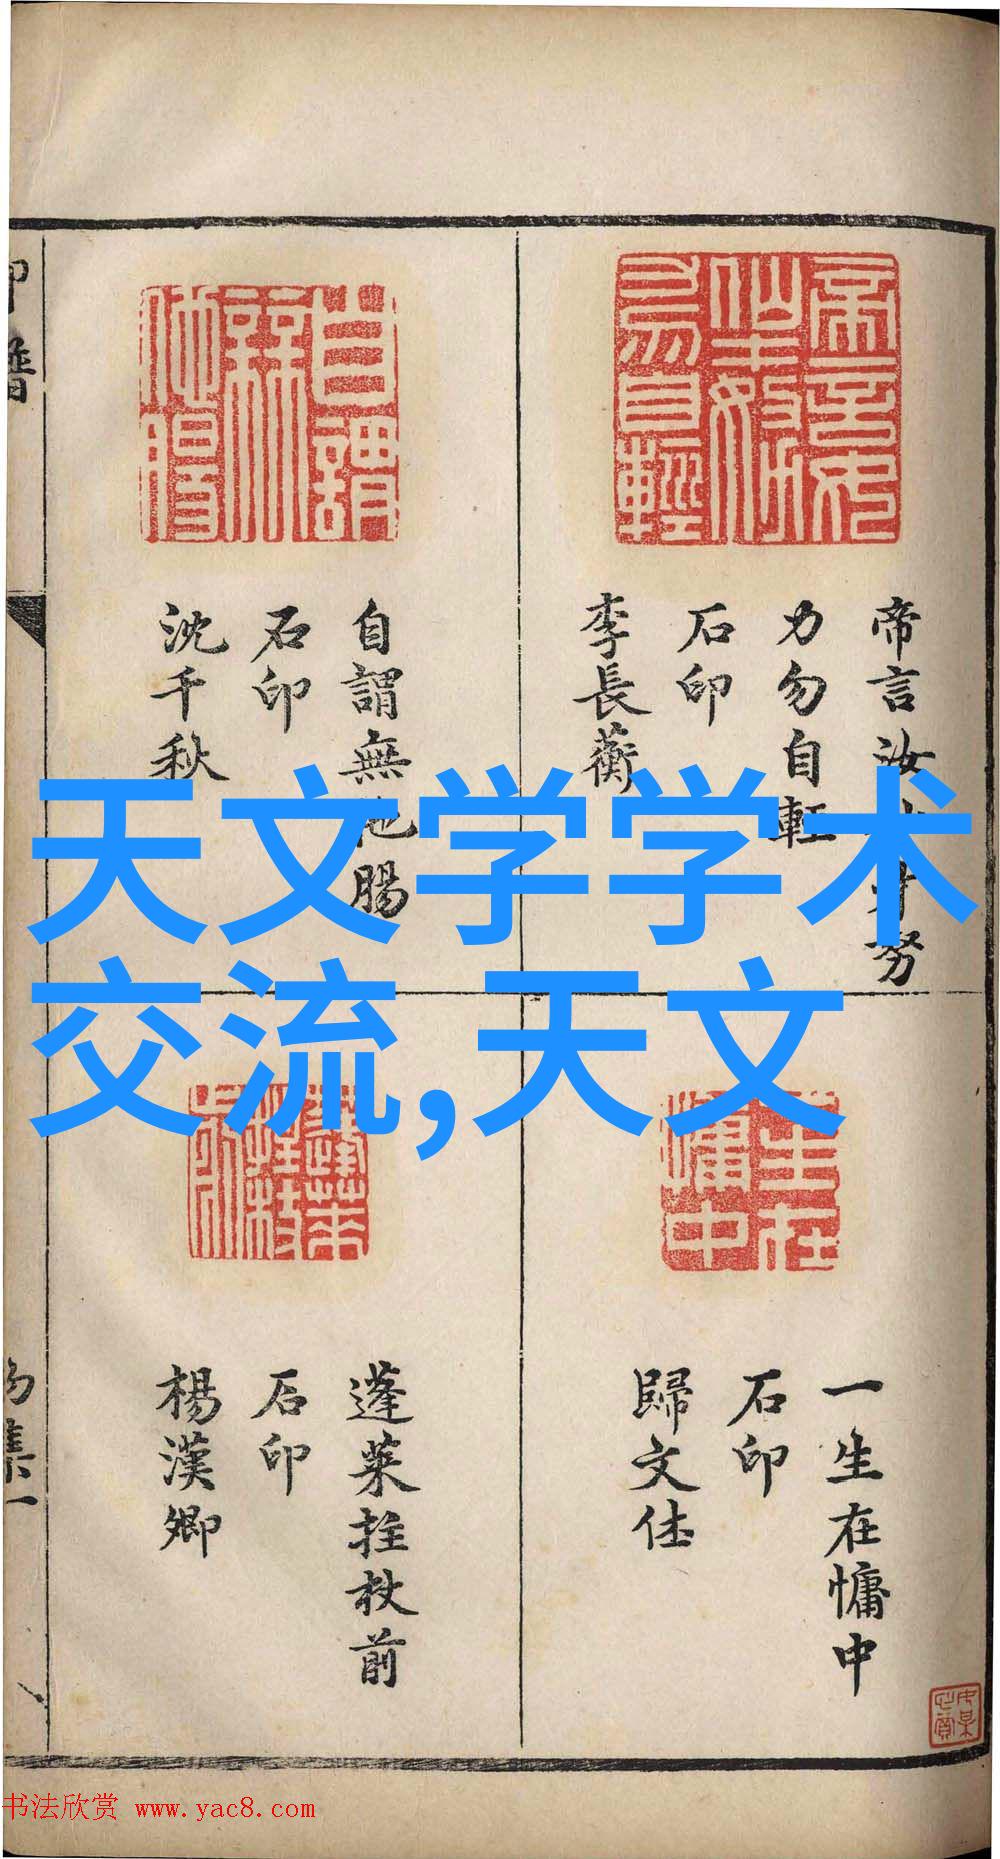 帝言汝仙才努
力勿自輕
石印
李長蘅
自謂無他腸
石印
沈千秋
一生在慵中
石印
歸文休
蓬萊拄杖前
石印
楊漢卿
印譜
集一
天文学学术
交流,天文
书法欣赏 www.yac8.com